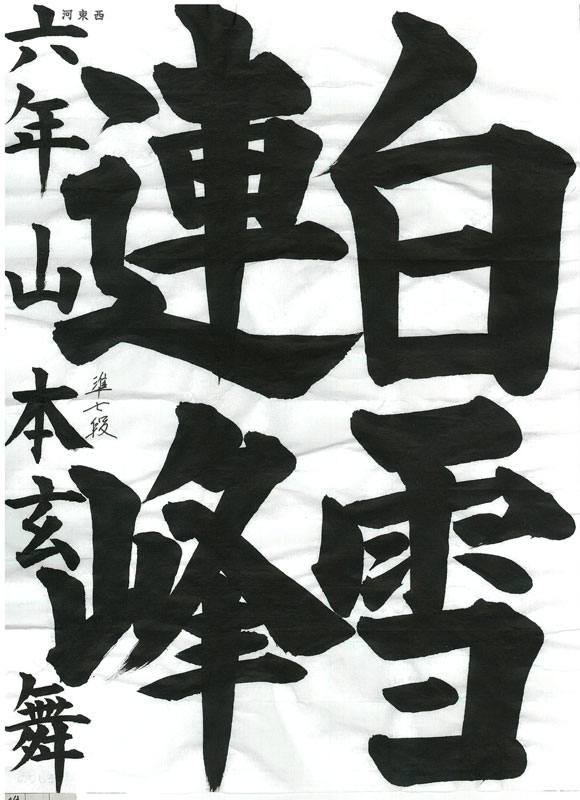 白雪
連峰
六年山本玄舞
準七段
河東西